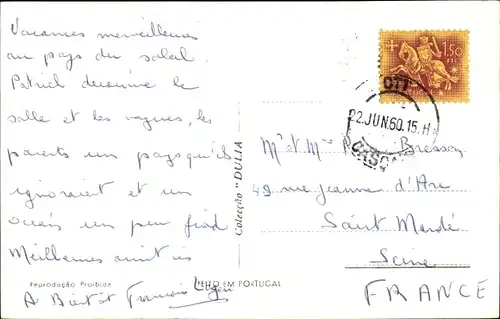 Vacances merveilleuses
au pays du soleil
Patrick découvre le
salle et les vagues, les
parents un pays qu'ils
ignoraient et un
océan un peu froid
Meilleures amitiés
A Bientôt François
Reprodução Proibida
FEITO EM PORTUGAL
Colecção "DÚLIA"
1$50
PORTUGAL
22.JUN.60.15.H
CASCA
M et Mme Bresson
49 rue Jeanne d'Arc
Saint Mandé
Seine
FRANCE